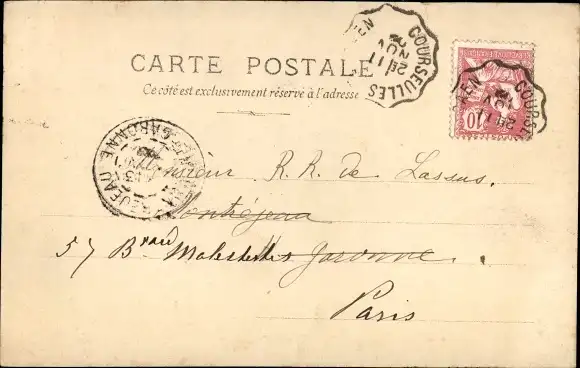 CARTE POSTALE
Ce côté est exclusivement réservé à l'adresse
COURSEULLES
11
NOV
COURSE
10
GARONNE
Monsieur R. R. de Lassus.
Montréjeau
57 Bard Malesherbes Garonne.
Paris